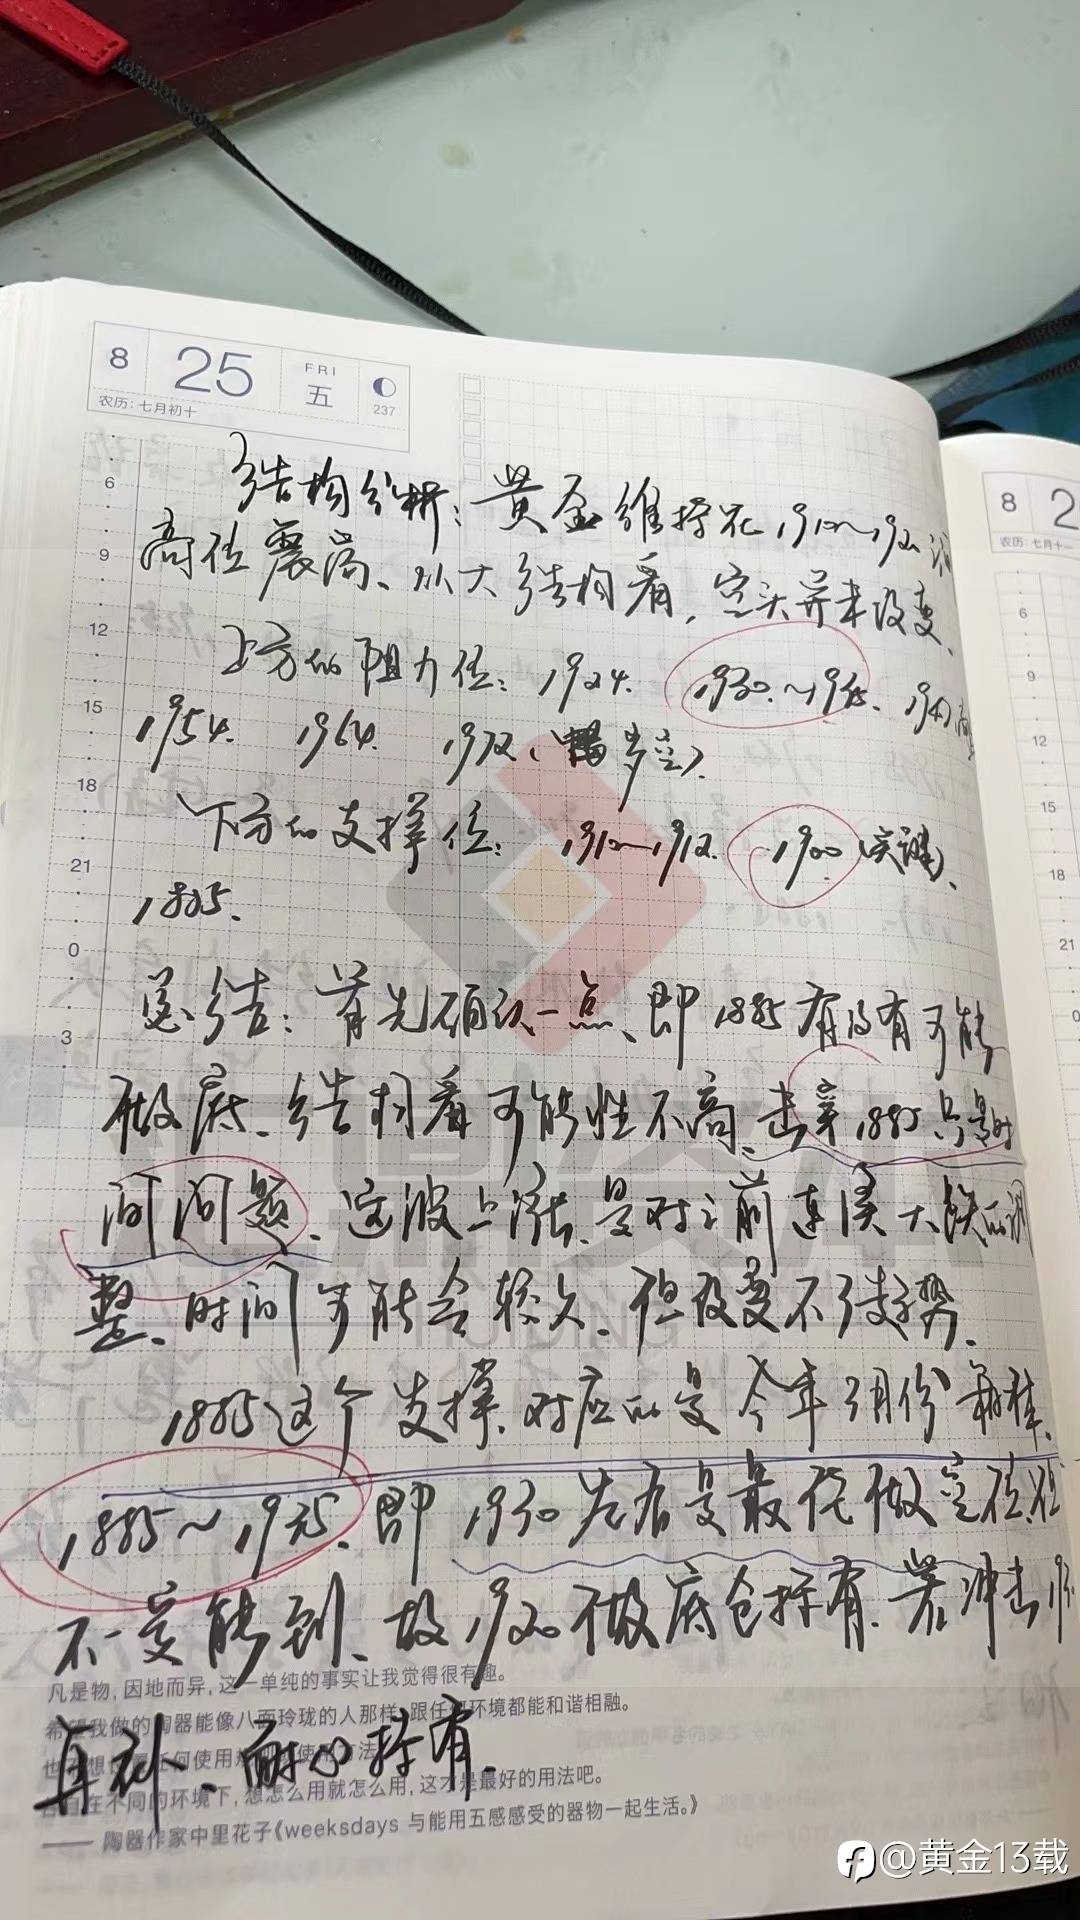 8 25 FRI 五 237
农历：七月初十
8 2
农历：七月十一
6
9
12
15
18
21
0
3
6
9
12
15
18
21
0
结构分析：黄金维持在1910~1920
高位震荡、从大结构看，空头并未改变、
上方的阻力位：1924. 1930.~1935.
1954. 1964. 1972
下方的支撑位：1910~1912. 1900（关键）、
1885.
总结：首先确认一点、即1885有没有可能
做底、结构看可能性不高、击穿1885只是时
间问题、这波上涨、是对之前连续大跌的调
整、时间可能会较久、但改变不了趋势、
1885这个支撑、对应的是今年3月份
1885~1935、即1930左右是最佳做空位、但
不一定能到、故1920做底仓持有、若冲击
再补、耐心持有、
凡是物，因地而异，这一单纯的事实让我觉得很有趣。
希望我做的陶器能像八面玲珑的人那样，跟任何环境都能和谐相融。
在不同的环境下，想怎么用就怎么用，这才是最好的用法吧。
—— 陶器作家中里花子《weeksdays 与能用五感感受的器物一起生活。》
@黄金13载